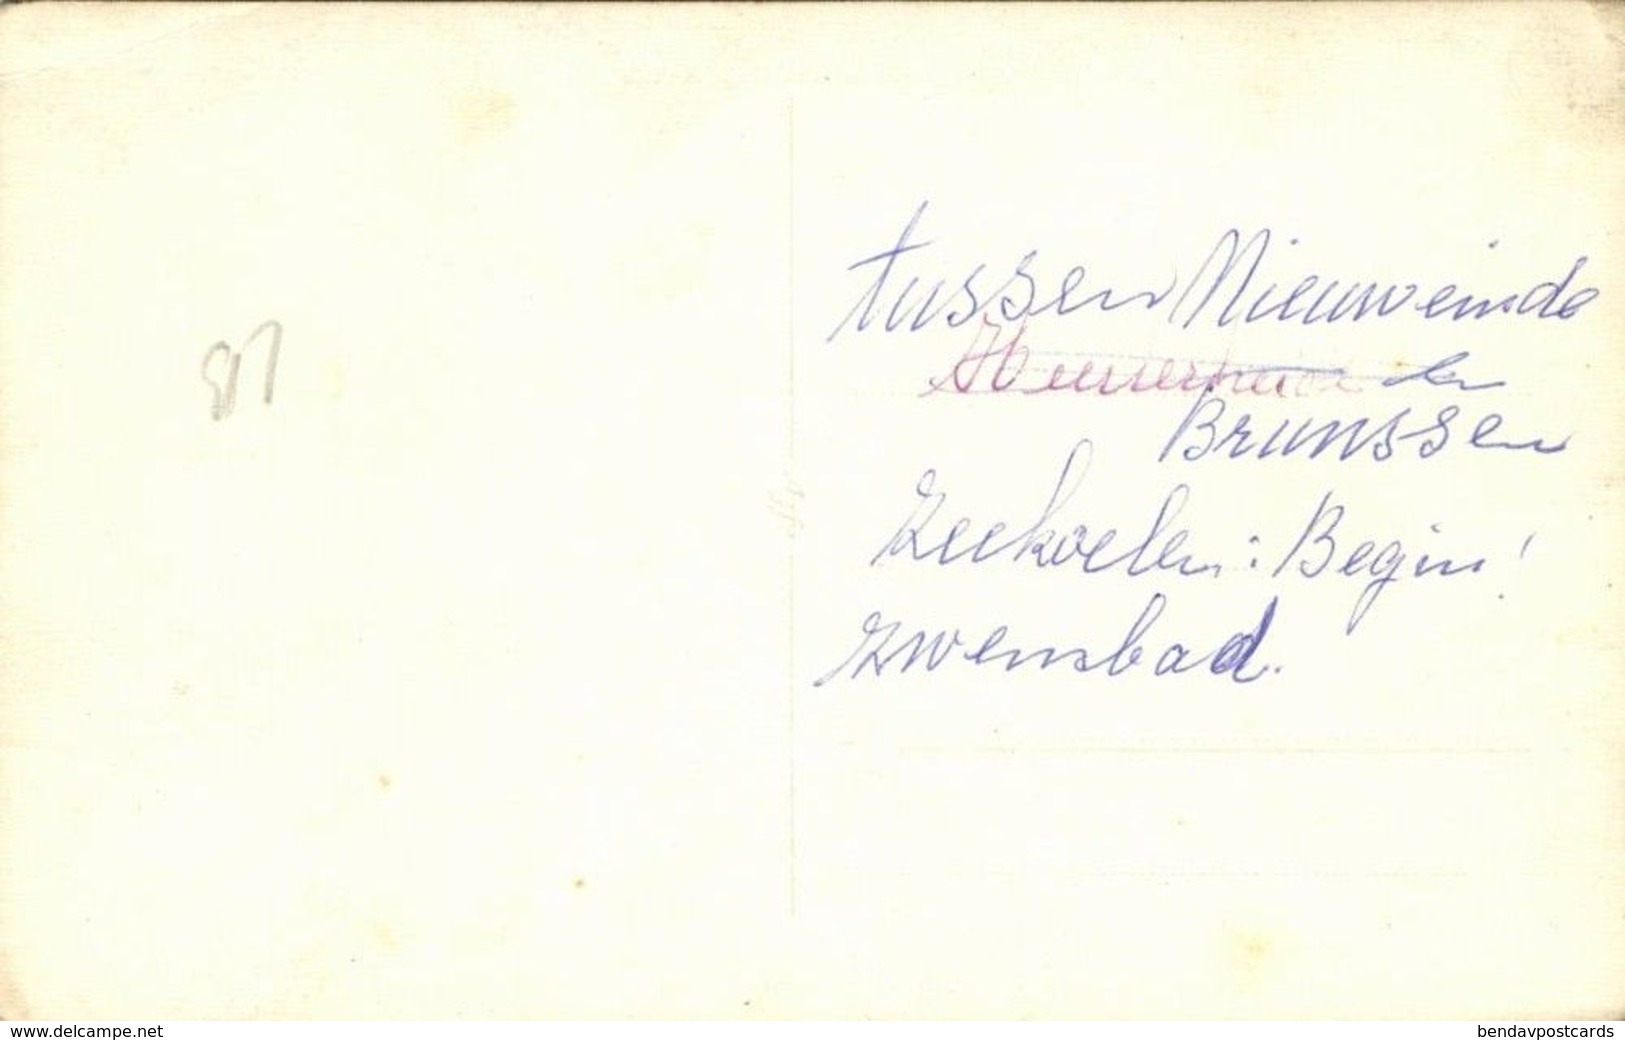 tussen Nieuweinde
en
Brunssen
Zeekoelen: Begin!
Zwembad.
www.delcampe.net
bendavpostcards